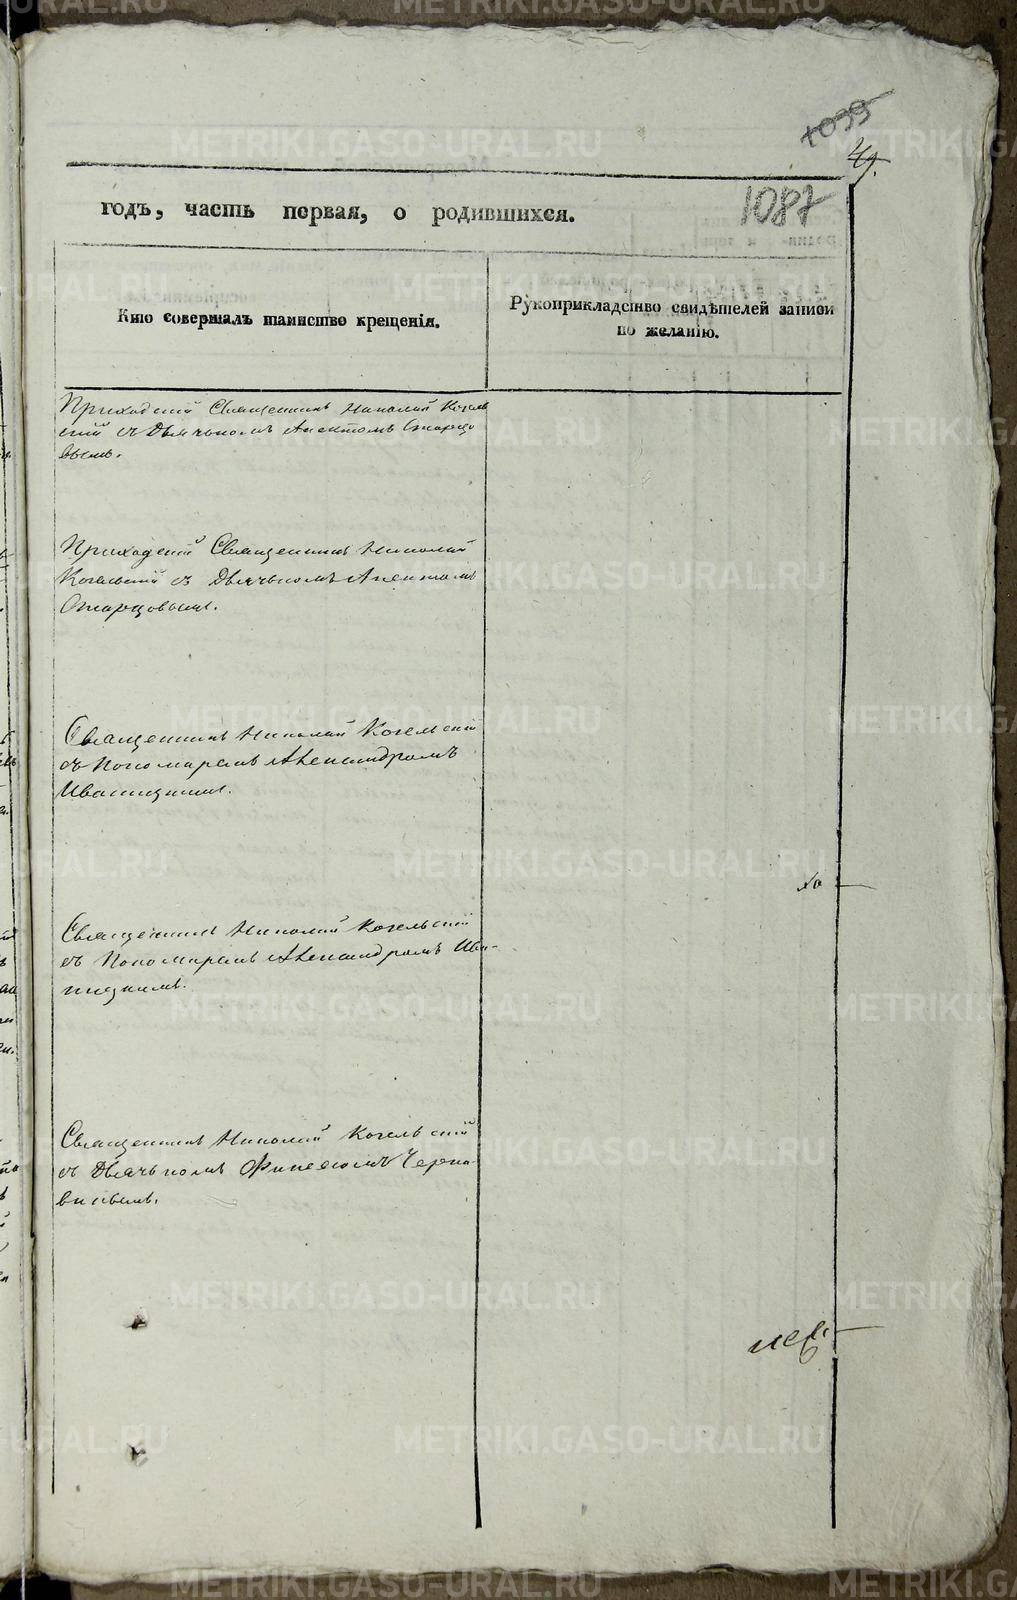 1099
49.
1087
годъ, часть первая, о родившихся.
Кто совершалъ таинство крещенія.
Рукоприкладство свидѣтелей записи
по желанію.
Приходскій Священникъ Николай Когель
скій съ Дьячькомъ Аиектомъ Старцо
вымъ.
Приходскій Священникъ Николай
Когельскій съ Дьячькомъ
Старцовымъ.
Священникъ Николай Когельскій
съ Пономаремъ Александромъ
Ивановымъ.
Священникъ Николай Когельскій
съ Пономаремъ Александромъ
Священникъ Николай Когельскій
съ Дьячькомъ Черна
виновымъ.
METRIKI.GASO-URAL.RU